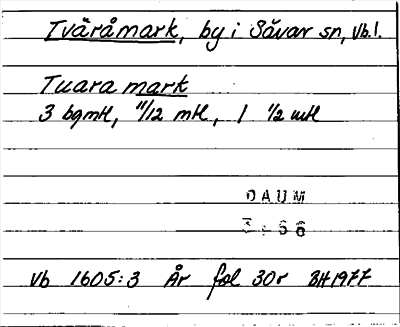 Tväråmark, by i Sävar sn, Vb.l.
Tuara mark
3 bgmtl, 11/12 mtl, 1 1/2 mtl
DAUM
66
Vb 1605:3 År fol 30r BH1977